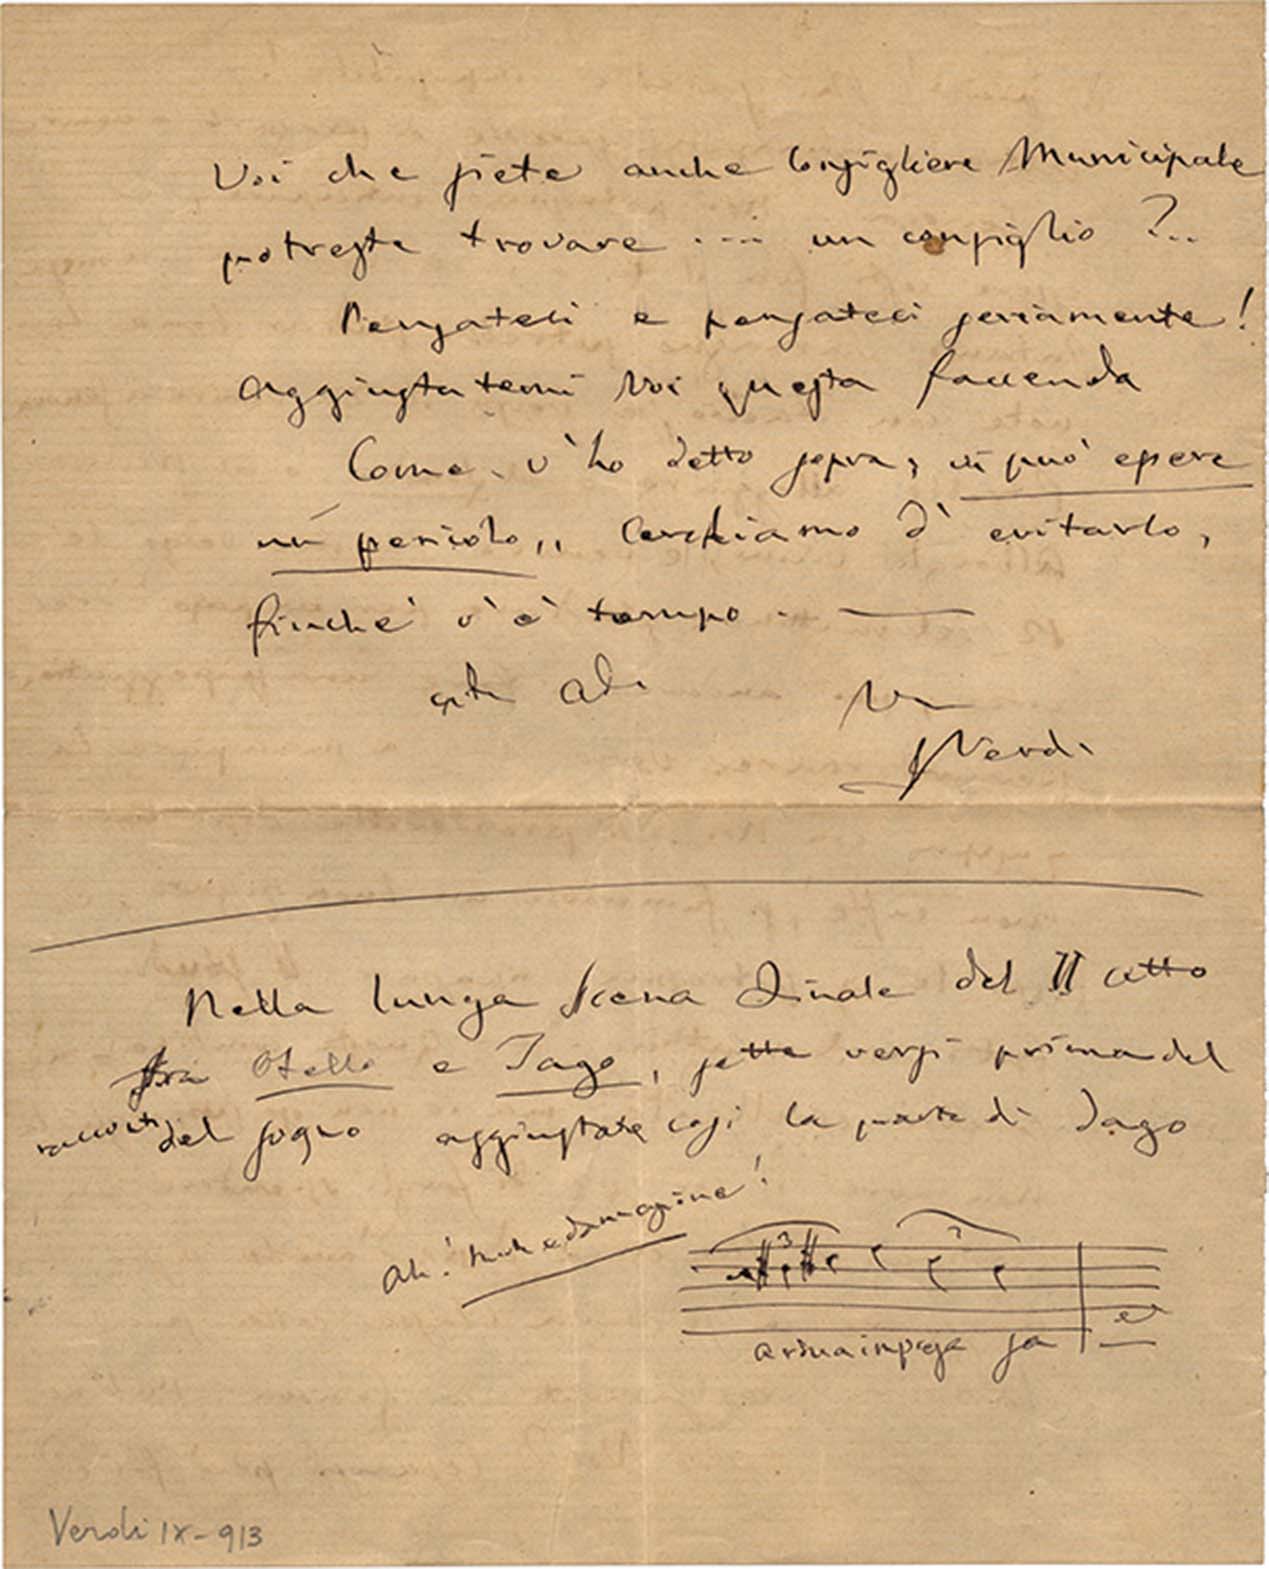 Voi che siete anche Consigliere Municipale
potreste trovare .... un consiglio ?..
Pensateci e pensateci seriamente!
Aggiustatemi Voi questa faccenda
Come v'ho detto sopra, vi può essere
un pericolo,, Cerchiamo d'evitarlo,
finchè v'è tempo . —
Ad.
G Verdi
Nella lunga Scena Finale del II atto
fra Otello e Iago, sette versi prima del
racconto del sogno aggiustate così la parte di Iago
Ah!
3
e rima inpesa sa
Verdi IX-913